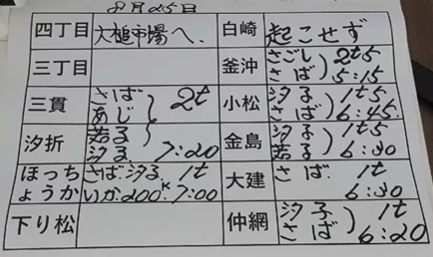 8月25日
四丁目 大槌市場へ.
白崎 起こせず
三丁目
釜沖 さごし 2t5
さば 5:15
三貫 さば
あじ 2t
小松 汐子 1t5
さば 6:45
汐折 若子
汐子 7:20
金島 汐子 1t5
若子 6:30
ほっちょうか さば.汐子. 1t
いか.200K 7:00
大建 さば. 1t
6:30
下り松
仲網 汐子 1t
さば 6:20